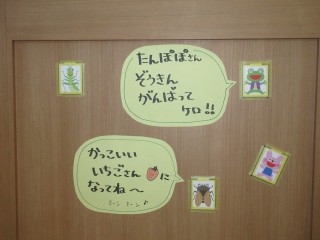 たんぽぽさん
ぞうきん
がんばって
ケロ!!
かっこいい
いちごさん🍓に
なってね〜
ミーン ミーン♪